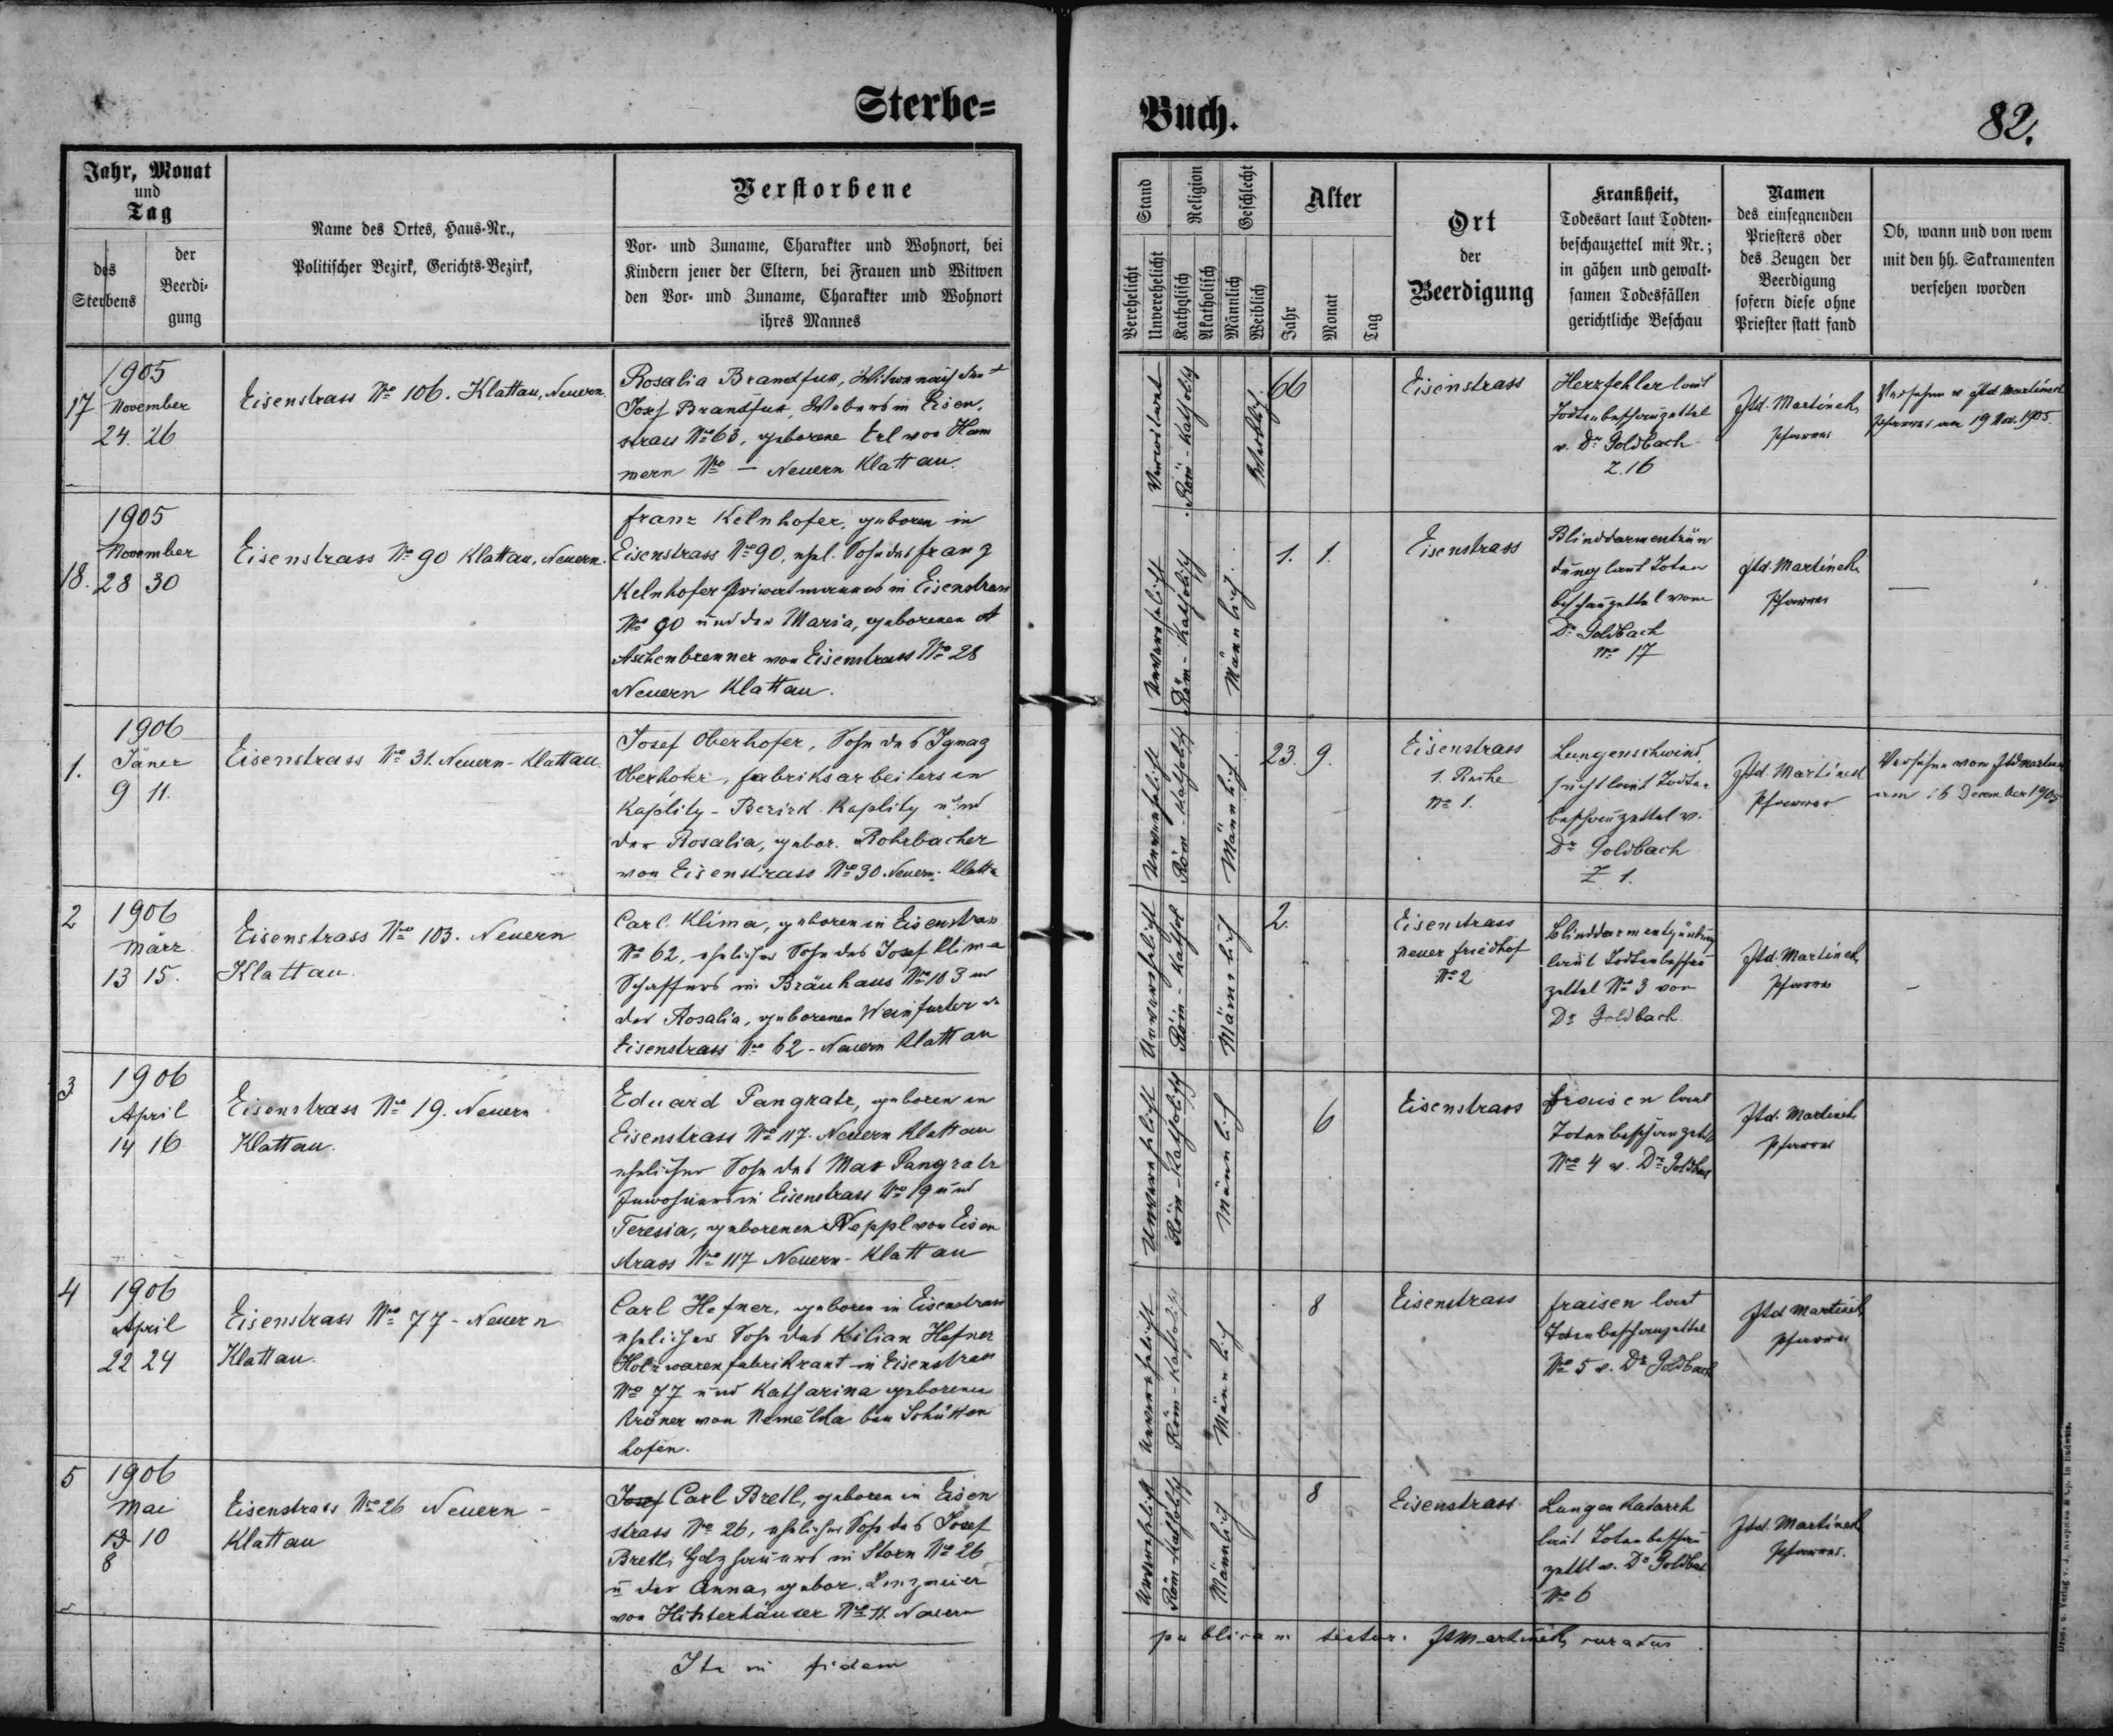 Sterbe=
Buch.
82.
Jahr, Monat
und
Tag
des
Sterbens
der
Beerdi-
gung
Name des Ortes, Haus-Nr.,
Politischer Bezirk, Gerichts-Bezirk,
Verstorbene
Vor- und Zuname, Charakter und Wohnort, bei
Kindern jener der Eltern, bei Frauen und Witwen
den Vor- und Zuname, Charakter und Wohnort
ihres Mannes
Stand
Verehelicht
Unverehelicht
Religion
Katholisch
Akatholisch
Geschlecht
Männlich
Weiblich
Alter
Jahr
Monat
Tag
Ort
der
Beerdigung
Krankheit,
Todesart laut Todten-
beschauzettel mit Nr.;
in gähen und gewalt-
samen Todesfällen
gerichtliche Beschau
Namen
des einsegnenden
Priesters oder
des Zeugen der
Beerdigung
sofern diese ohne
Priester statt fand
Ob, wann und von wem
mit den hh. Sakramenten
versehen worden
17
1905
November
24. 26
Eisenstrass No 106. Klattau, Neuern.
Rosalia Brandfus, Witwe nach dem †
Josef Brandfus, Webers in Eisen,
strass No 63, geborene Erl von Ham
mern No — Neuern Klattau.
Verwitwet
Röm-Katholisch
Weiblich.
66
Eisenstrass
Herzfehler laut
Todtenbeschauzettel
v. Dr Goldbach
Z. 16
Ftd. Martinek
Pfarrer
Versehen v Ftd Martinek
Pfarrer am 19 Nov. 1905.
18.
1905
November
28 30
Eisenstrass No 90 Klattau, Neuern.
Franz Kelnhofer, geboren in
Eisenstrass No 90, ehel. Sohn des Franz
Kelnhofer Privatmannes in Eisenstrass
No 90 und der Maria, geborenen
Aschenbrenner von Eisenstrass No 28
Neuern Klattau.
Unverehelicht
Röm-Katholisch
Männlich.
1. 1.
Eisenstrass
Blinddarmentzün
dung laut Toten
beschauzettel vom
Dr Goldbach
No 17
Ftd. Martinek
Pfarrer
—
1.
1906
Jäner
9 11.
Eisenstrass No 31. Neuern-Klattau.
Josef Oberhofer, Sohn des Ignaz
Oberhofer, Fabriksarbeiters in
Kaplitz-Bezirk Kaplitz und
der Rosalia, gebor. Rohrbacher
von Eisenstrass No 30. Neuern. Klatta
Unverehelicht
Röm-Katholisch
Männlich.
23. 9.
Eisenstrass
1. Reihe
No 1.
Lungenschwind,
sucht laut Todten
beschauzettel v.
Dr Goldbach
Z 1.
Ftd. Martinek
Pfarrer
Versehen vom Ftd Martinek
am 16 December 1905
2
1906
März
13 15.
Eisenstrass No 103. Neuern
Klattau.
Carl Klima, geboren in Eisenstrass
No 62, ehelicher Sohn des Josef Klima
Schaffers in Bräuhaus No 103 und
der Rosalia, geborenen Weinfurter v
Eisenstrass No 62-Neuern Klattau
Unverehelicht
Röm-Kathol
Männlich
2.
Eisenstrass
neuer Friedhof
No 2
Blinddarmentzündung
laut Todtenbeschau
zettel No 3 von
Dr Goldbach.
Ftd. Martinek
Pfarrer
—
3
1906
April
14 16
Eisenstrass No 19. Neuern
Klattau.
Eduard Pangratz, geboren in
Eisenstrass No 117. Neuern Klattau
ehelicher Sohn des Max Pangratz
Inwohners in Eisenstrass No 19 und
Teresia, geborenen Neppl von Eisen
strass No 117 Neuern-Klattau
Unverehelicht
Röm-Katholisch
Männlich
6
Eisenstrass
Fraisen laut
Totenbeschauzettel
No 4 v. Dr Goldbach
Ftd. Martinek
Pfarrer
4
1906
April
22 24
Eisenstrass No 77-Neuern
Klattau.
Carl Hefner, geboren in Eisenstrass
ehelicher Sohn des Kilian Hefner
Holzwarenfabrikant in Eisenstrass
No 77 und Katharina geborenen
Kröner von Nemělka bei Schütten
hofen.
Unverehelicht
Röm-Katholisch
Männlich
8
Eisenstrass
Fraisen laut
Totenbeschauzettel
No 5 v. Dr Goldbach
Ftd Martinek
Pfarrer
5
1906
Mai
13 10
8
Eisenstrass No 26 Neuern-
Klattau
Josef Carl Bretl, geboren in Eisen
strass No 26, ehelicher Sohn des Josef
Bretl, Holzhauers in Storn No 26
u der Anna, gebor.
von Hinterhäuser No 11. Neuern
Unverehelicht
Röm-Katholisch
Männlich
8
Eisenstrass
Lungenkatarrh
laut Totenbeschau
zettl v. Dr Goldbach
No 6
Ftd. Martinek
Pfarrer.
Ita in fidem
publicam testor. Martinek curatus.